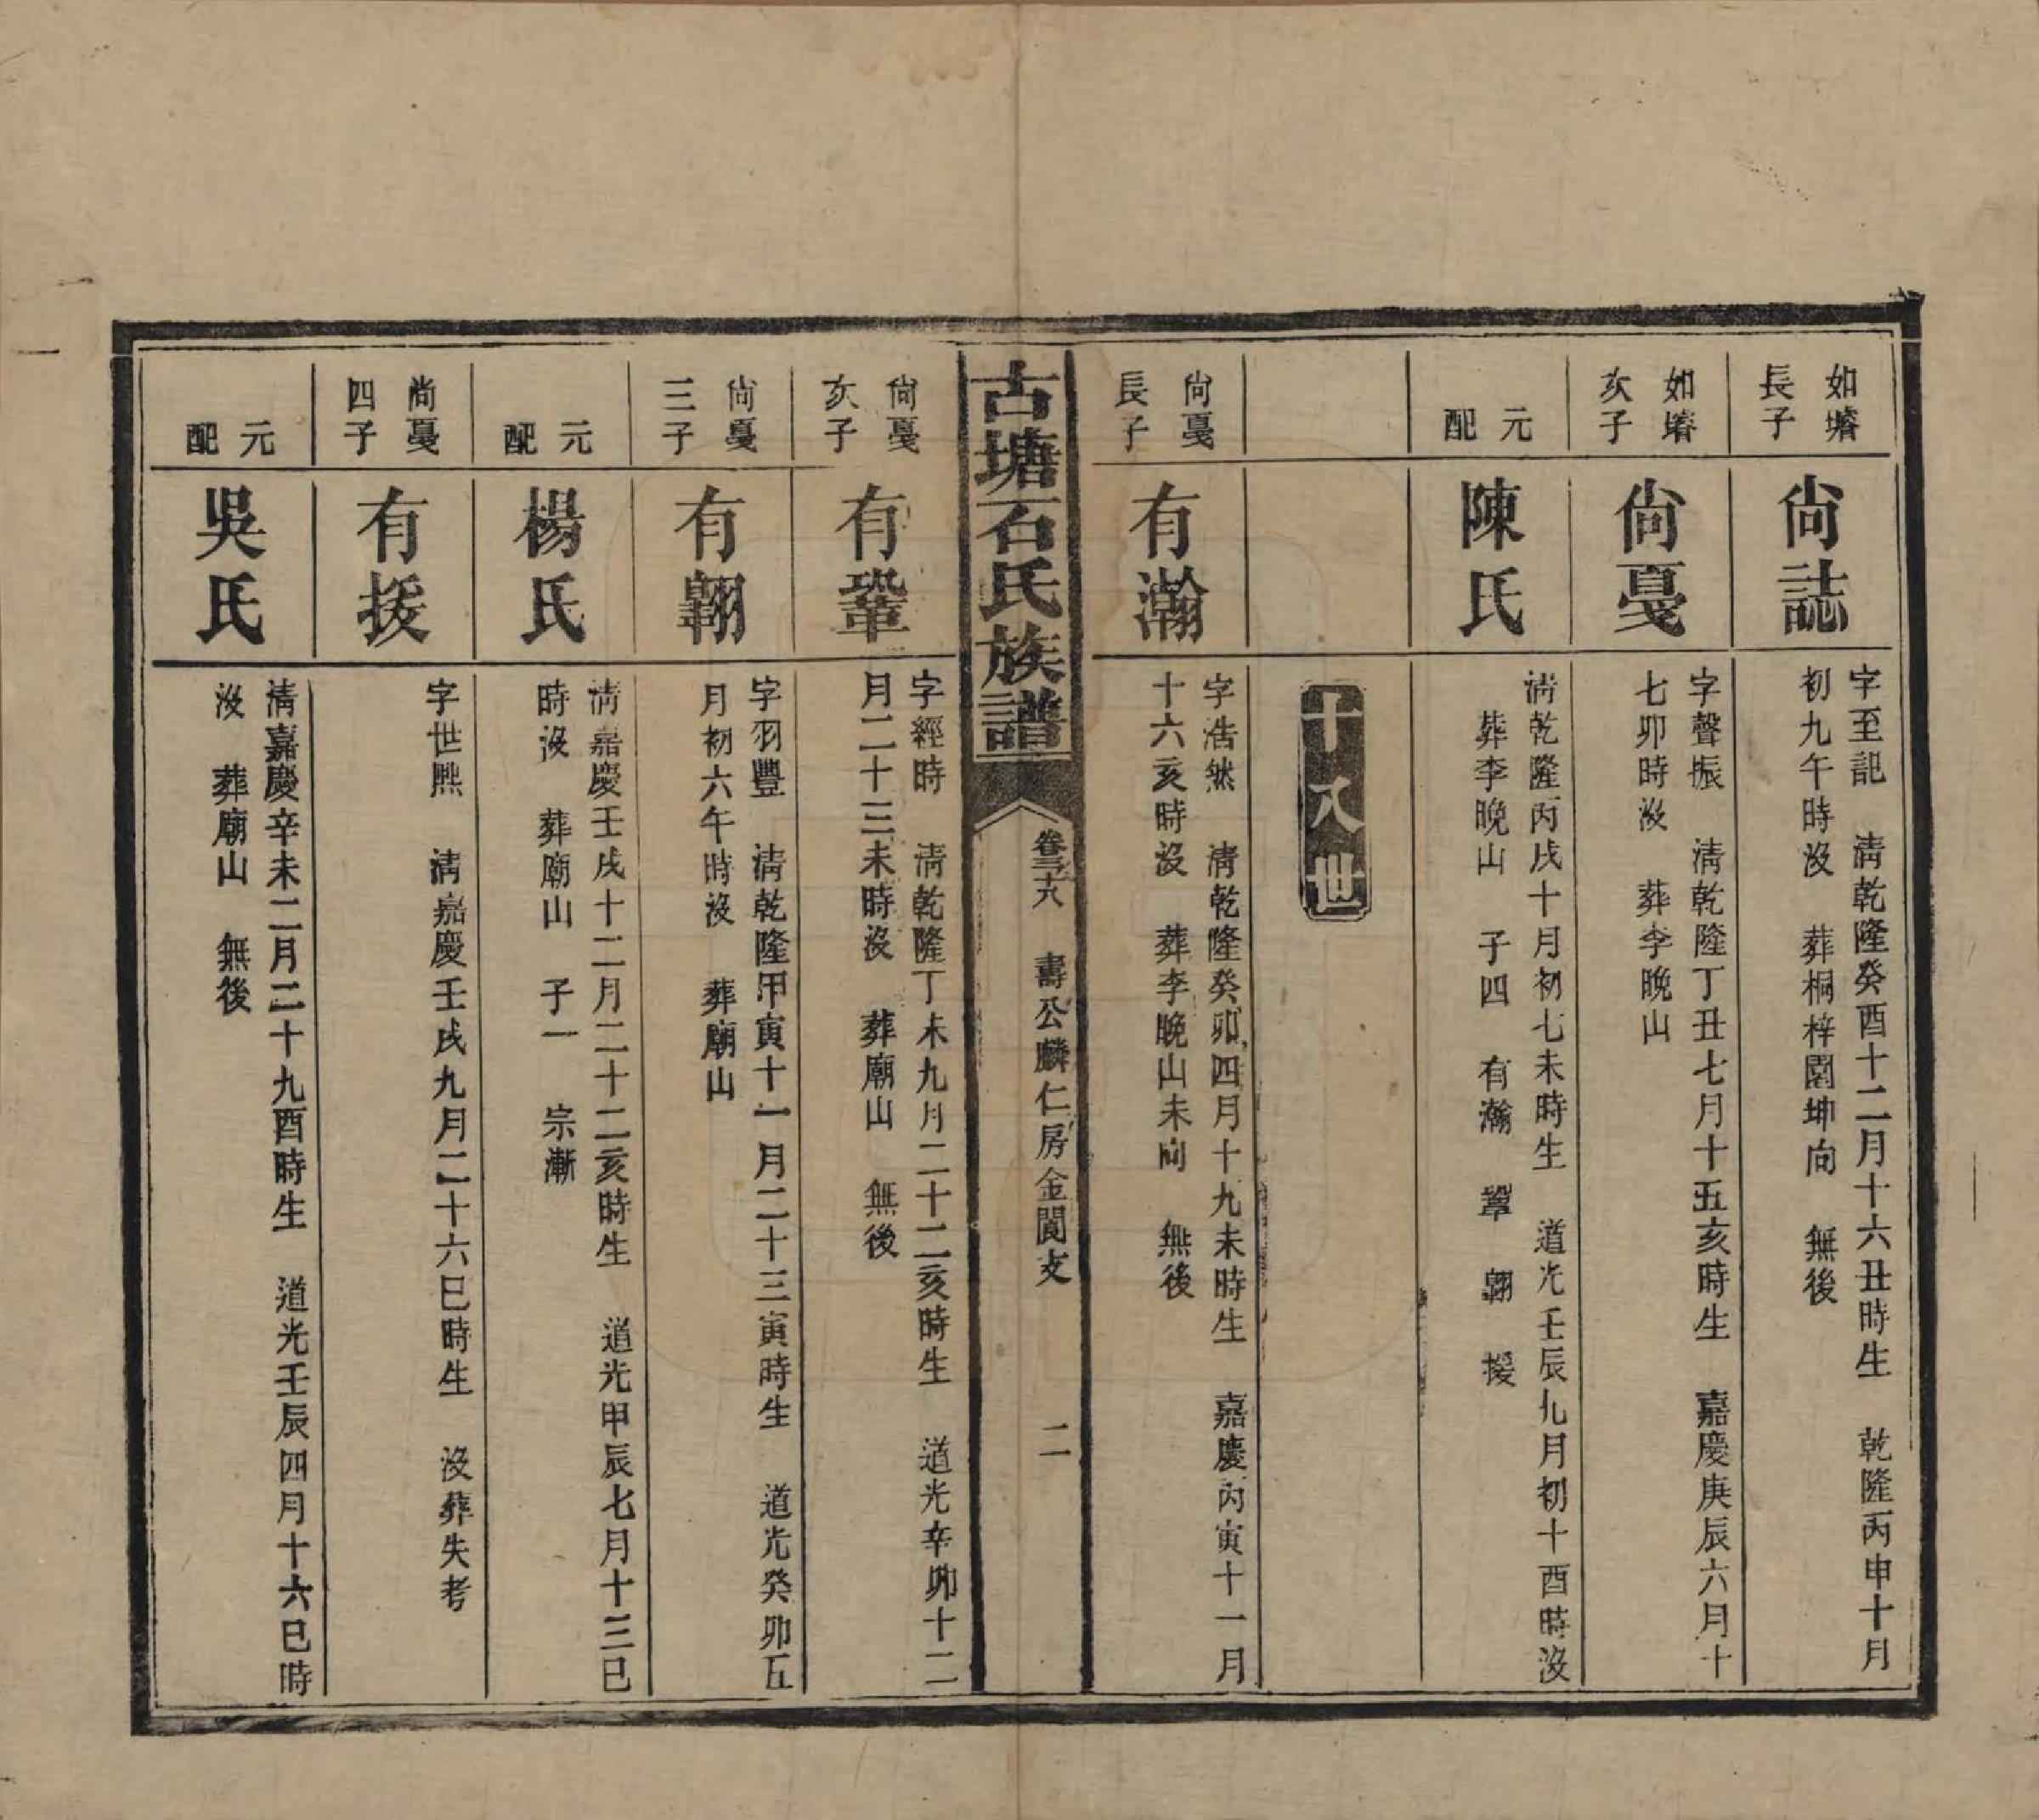 如壔
長子
尙誌
字至記　淸乾隆癸酉十二月十六丑時生　乾隆丙申十月
初九午時沒　葬桐梓園坤向　無後
如壔
次子
尙戞
字聲振　淸乾隆丁丑七月十五亥時生　嘉慶庚辰六月十
七卯時沒　葬李晚山
元
配
陳氏
淸乾隆丙戌十月初七未時生　道光壬辰九月初十酉時沒
葬李晚山　子四　有瀚　鞏　翺　援
十八世
尙戞
長子
有瀚
字浩然　淸乾隆癸卯四月十九未時生　嘉慶丙寅十一月
十六亥時沒　葬李晚山未向　無後
古塘石氏族譜
卷三十八　壽公麟仁房金閶支　二
尙戞
次子
有鞏
字經時　淸乾隆丁未九月二十二亥時生　道光辛卯十二
月二十三未時沒　葬廟山　無後
尙戞
三子
有翺
字羽豐　淸乾隆甲寅十一月二十三寅時生　道光癸卯五
月初六午時沒　葬廟山
元
配
楊氏
淸嘉慶壬戌十二月二十二亥時生　道光甲辰七月十三巳
時沒　葬廟山　子一　宗漸
尙戞
四子
有援
字世熙　淸嘉慶壬戌九月二十六巳時生　沒葬失考
元
配
吳氏
淸嘉慶辛未二月二十九酉時生　道光壬辰四月十六巳時
沒　葬廟山　無後